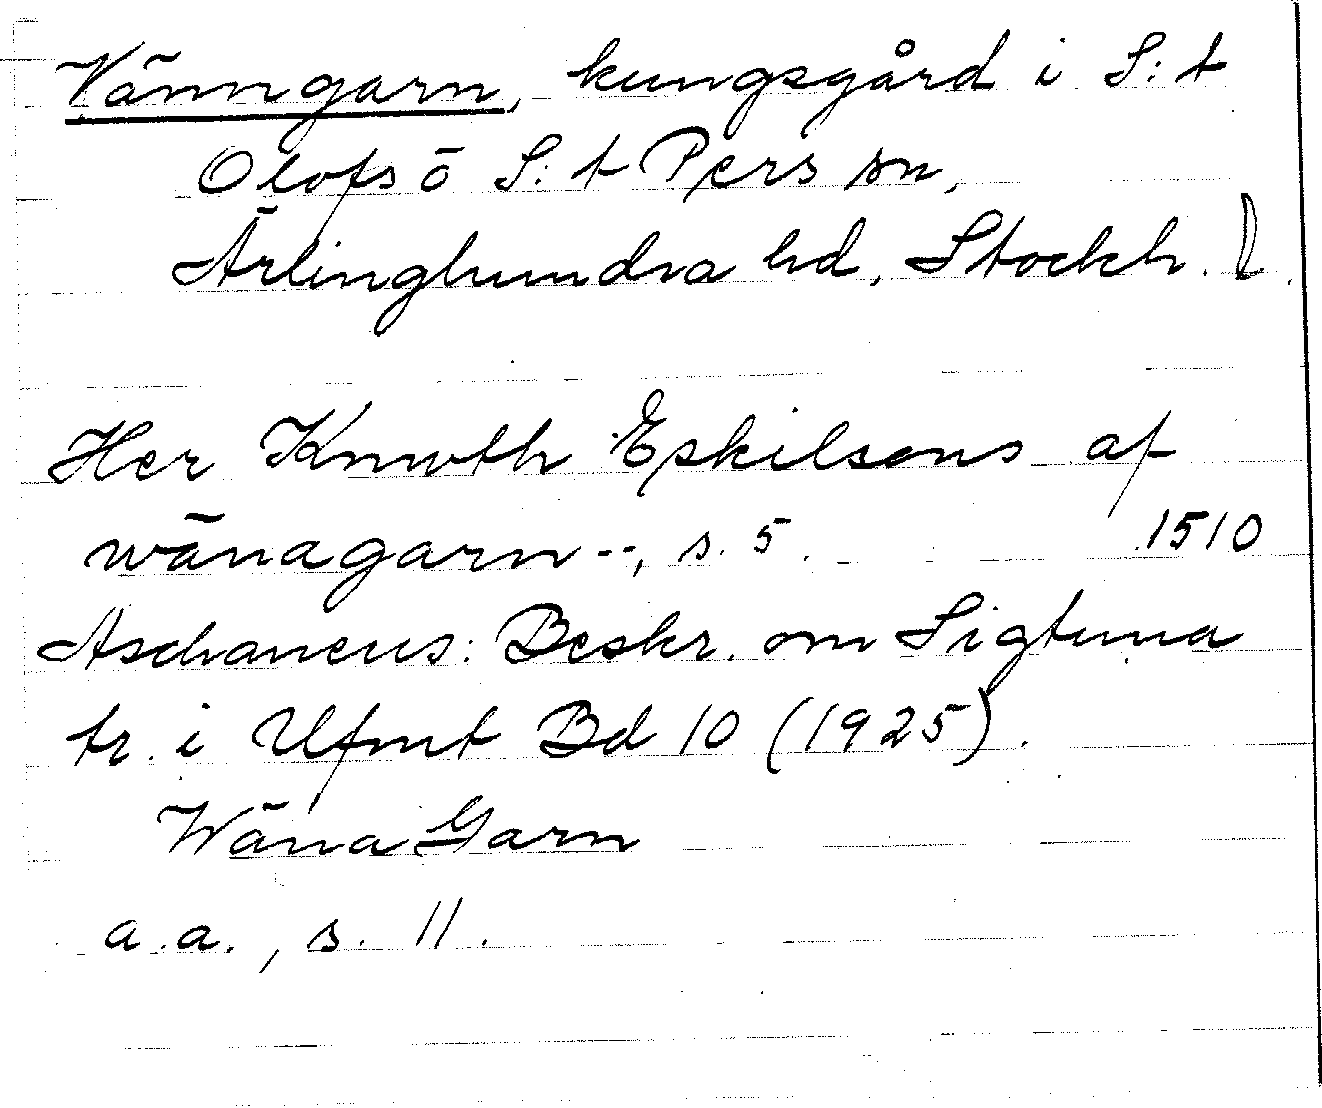 Vänngarn, kungsgård i S:t
Olofs ö S:t Pers sn,
Ärlinghundra hd, Stockh. l.
Her Knwth Eskilsons af
wänagarn --, s. 5. 1510
Aschaneus: Beskr. om Sigtuna
tr. i Ufmt Bd 10 (1925).
Wäna Garn
a.a., s. 11.